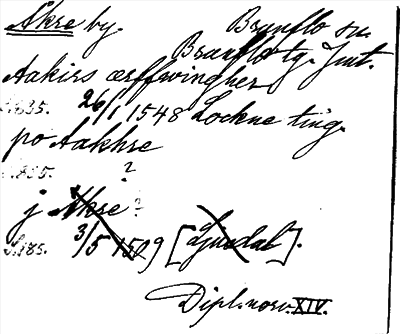 Åkre by. Brunflo sn.
Brunflo tg. Jmt.
Aakirs ærffwingher
S.135. 26/1 1548 Lockne ting.
po Aakhre
S.185. ?
j Akre ?
S.185. 3/5 1509 [Gusdal].
Dipl. norv. XIV.